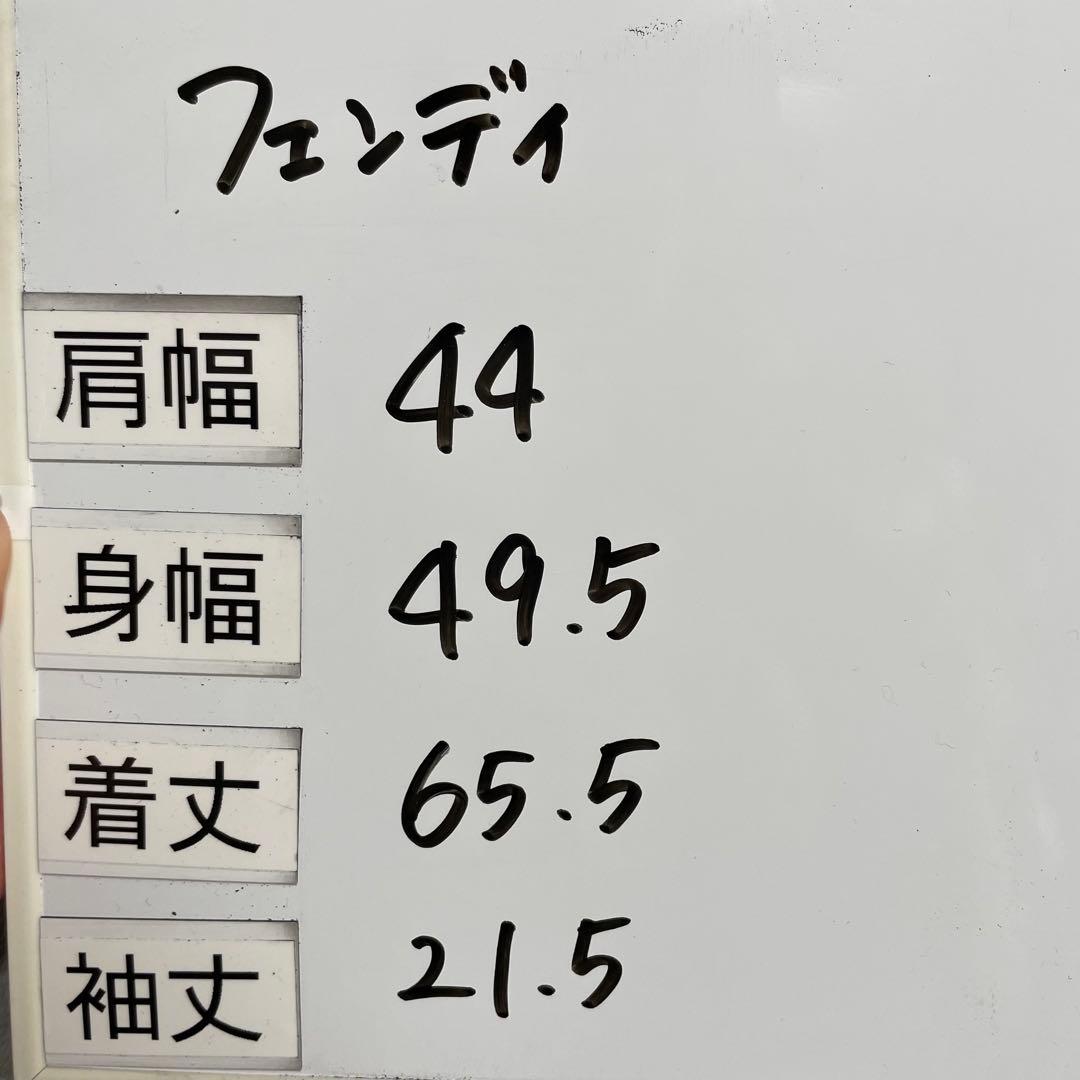 フェンディ
肩幅 44
身幅 49.5
着丈 65.5
袖丈 21.5